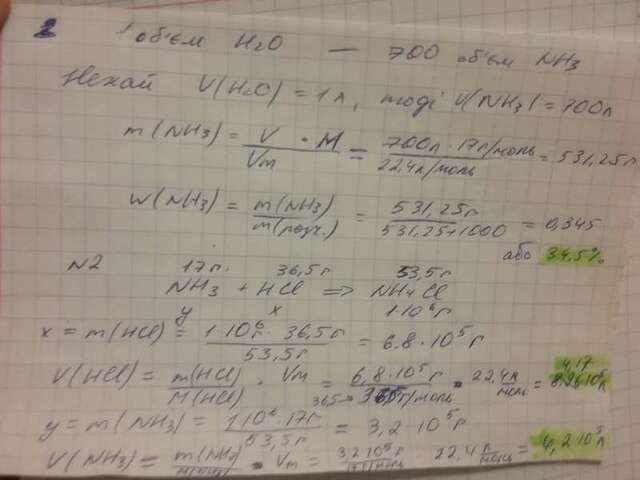 2 1 об'єм H₂O — 700 об'єм NH₃
Нехай V(H₂O) = 1л, тоді V(NH₃) = 700л
m(NH₃) = V/Vm · M = 700л · 17г/моль / 22,4л/моль = 531,25г
w(NH₃) = m(NH₃)/m(розч.) = 531,25г / 531,25+1000 = 0,345
або 34,5%
N2 17г. 36,5г 53,5г
NH₃ + HCl => NH₄Cl
y x 1·10⁶г
x = m(HCl) = 1·10⁶г · 36,5г / 53,5г = 6.8·10⁵г
V(HCl) = m(HCl)/M(HCl) · Vm = 6,8·10⁵г / 36,5 г/моль · 22,4 л/моль = 4,17 10⁵л
y = m(NH₃) = 1·10⁶·17г / 53,5г = 3,2·10⁵г
V(NH₃) = m(NH₃) · Vm = 3,2·10⁵г 22,4 л/моль = 4,2·10⁵л